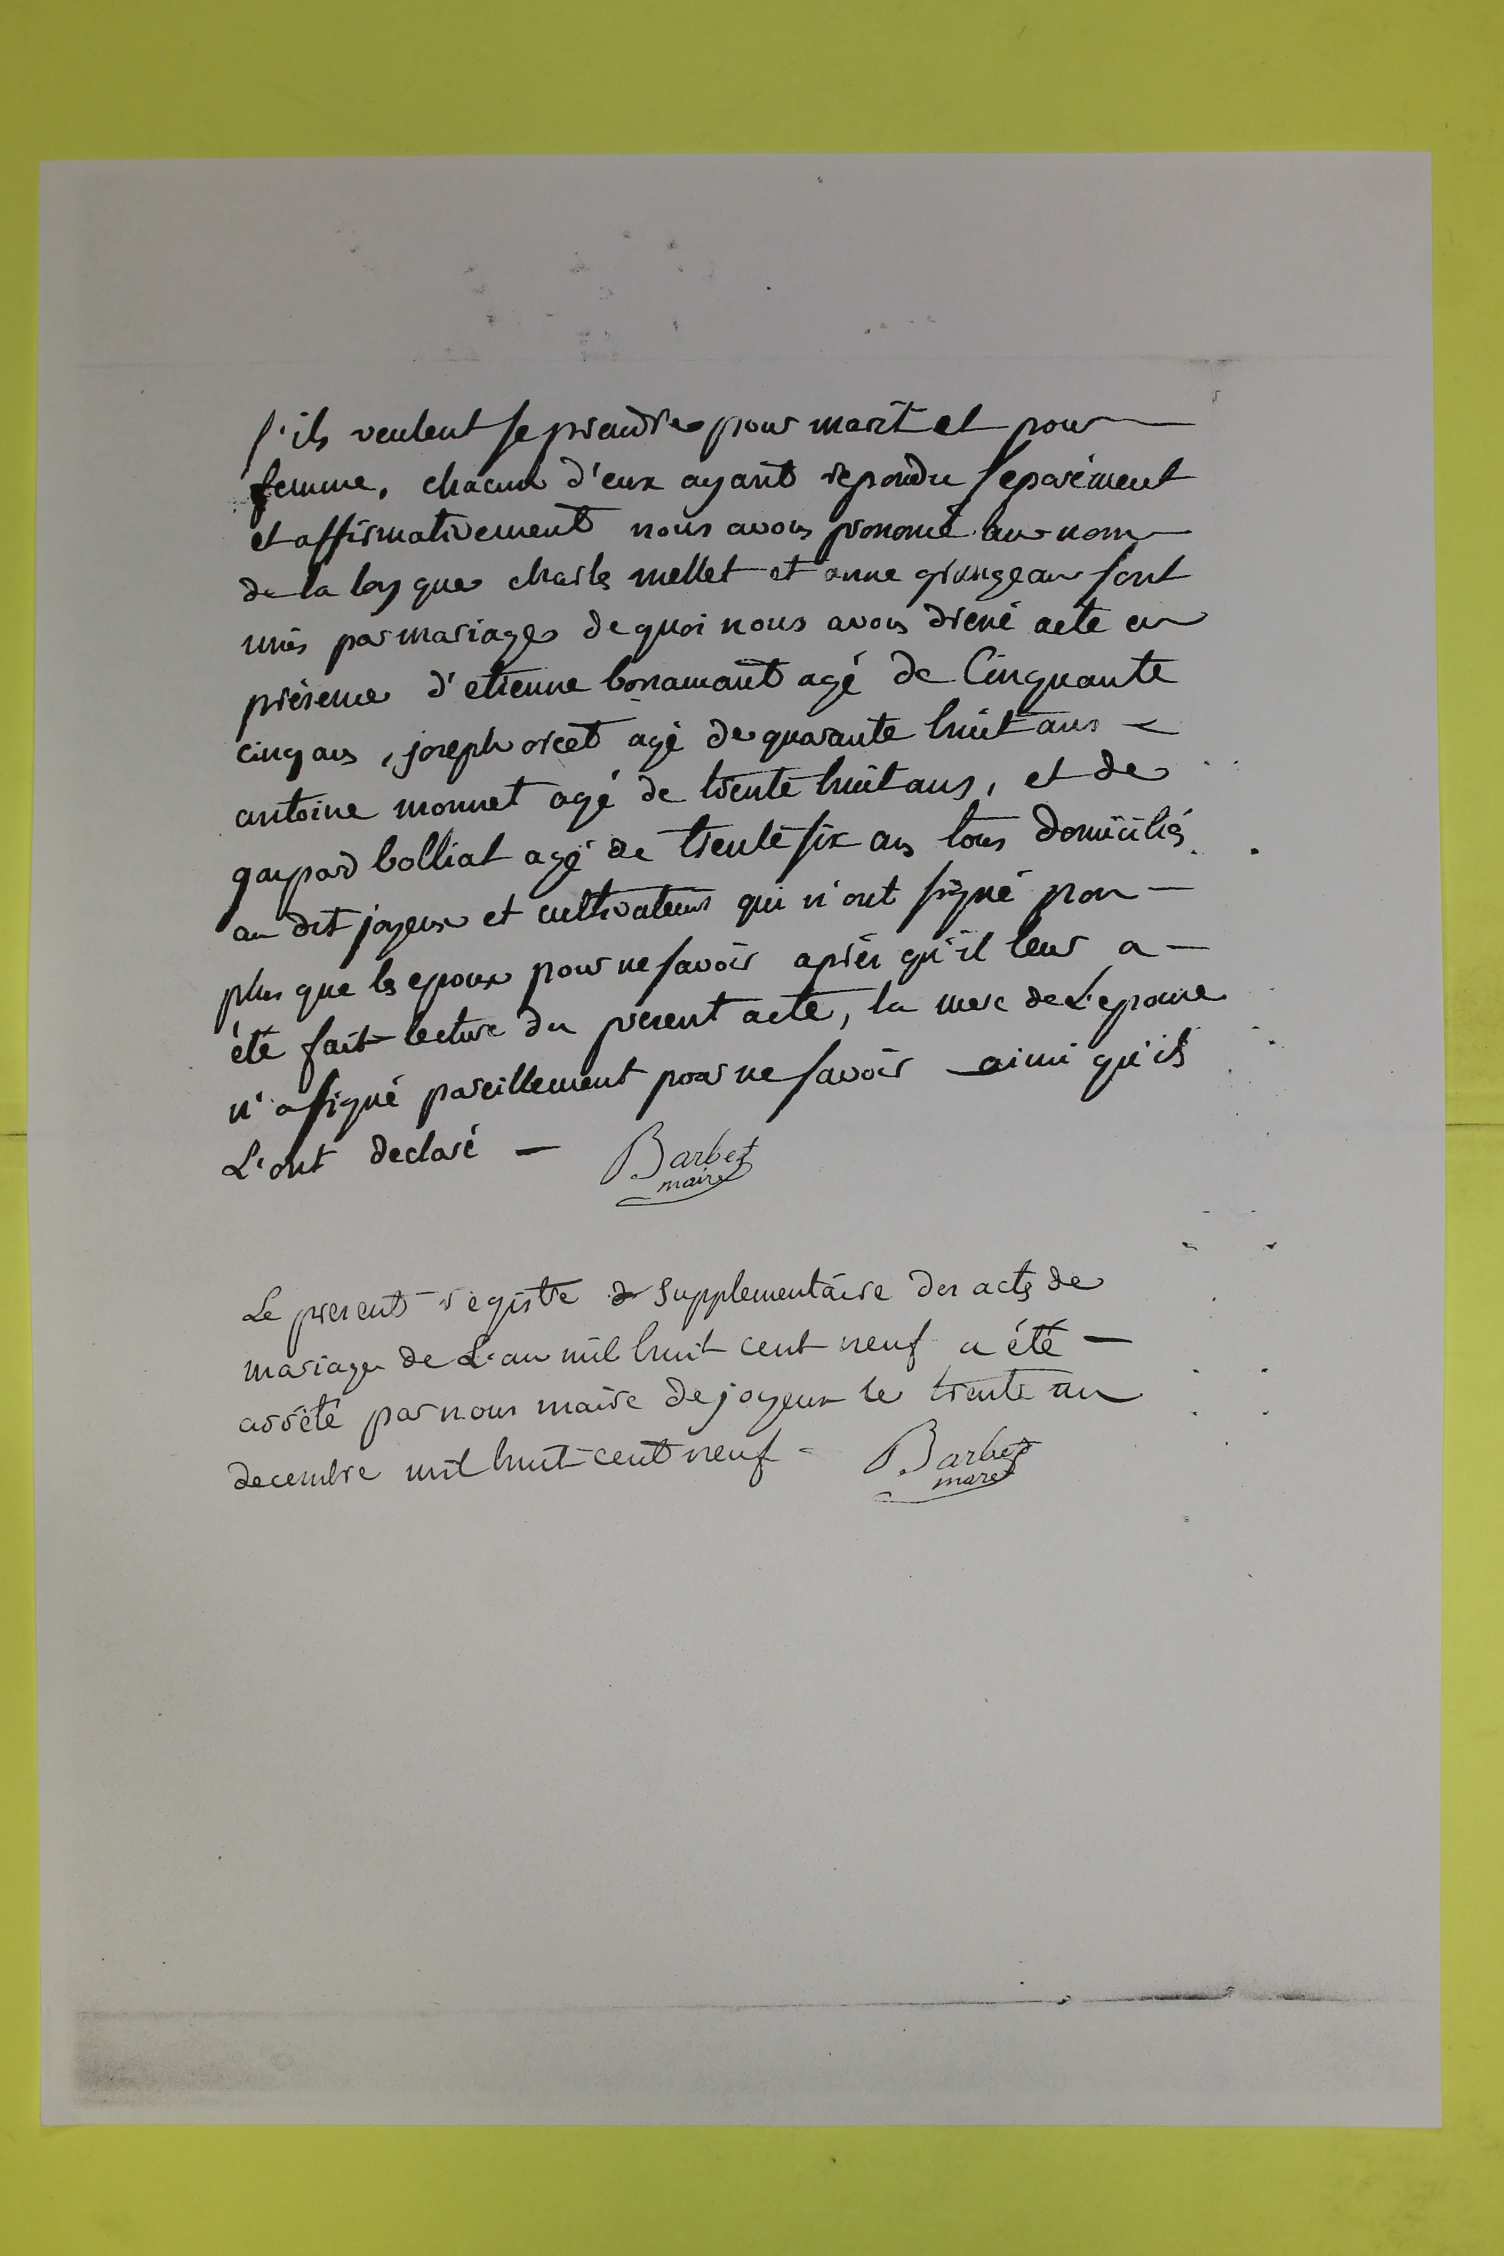 s'ils veulent se prendre pour marit et pour
femme, chacun d'eux ayant repondu separement
et affirmativement nous avons prononcé au nom
de la loy que charles mellet et anne grangean sont
uniés par mariage de quoi nous avons drené acte en
présence d'etienne bonamant agé de Cinquante
cinq ans, joseph orcet agé de quarante huit ans
antoine monnet agé de trente huit ans, et de
gaspard bolliat agé de trente six ans tous domiciliés
au dit joyeux et cultivateurs qui n'ont signé non
plus que les epoux pour ne savoir après qu'il leur a
été fait lecture du present acte, la mere de L'epouse
n'a signé pareillement pour ne savoir ainsi qu'ils
L'ont declaré — Barbet
maire
Le present registre supplementaire des actes de
mariage de L'an mil huit cent neuf a été —
arrêté par nous maire de joyeux le trente un
decembre mil huit cent neuf - Barbet
mare